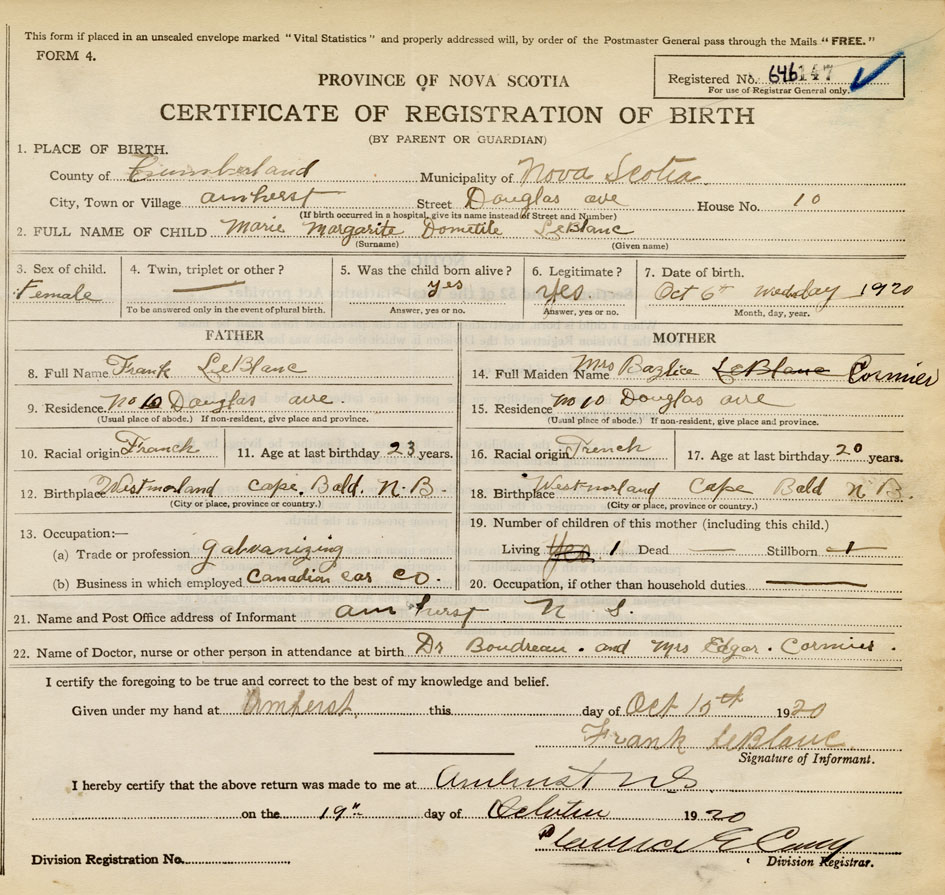 This form if placed in an unsealed envelope marked "Vital Statistics" and properly addressed will, by order of the Postmaster General pass through the Mails "FREE."
FORM 4.
PROVINCE OF NOVA SCOTIA
Registered No. 646147
For use of Registrar General only.
CERTIFICATE OF REGISTRATION OF BIRTH
(BY PARENT OR GUARDIAN)
1. PLACE OF BIRTH.
County of Cumberland Municipality of Nova Scotia
City, Town or Village amherst Street Douglas ave House No. 10
(If birth occurred in a hospital, give its name instead of Street and Number)
2. FULL NAME OF CHILD Marie Margarite Dometile LeBlanc
(Surname) (Given name)
3. Sex of child. 4. Twin, triplet or other? 5. Was the child born alive? 6. Legitimate? 7. Date of birth.
Female — yes yes Oct 6th wedsday 1920
To be answered only in the event of plural birth. Answer, yes or no. Answer, yes or no. Month, day, year.
FATHER
8. Full Name Frank LeBlanc
9. Residence no 10 Douglas ave.
(Usual place of abode.) If non-resident, give place and province.
10. Racial origin Franck 11. Age at last birthday 23 years.
12. Birthplace Westmorland Cape. Bald. N. B.
(City or place, province or country.)
13. Occupation:—
(a) Trade or profession galvanizing
(b) Business in which employed Canadian car co.
MOTHER
14. Full Maiden Name Mrs Bazlice LeBlanc Cormier
15. Residence no 10 Douglas ave
(Usual place of abode.) If non-resident, give place and province.
16. Racial origin French 17. Age at last birthday 20 years.
18. Birthplace Westmorland Cape Bald N B.
(City or place, province or country.)
19. Number of children of this mother (including this child.)
Living Yes 1 Dead — Stillborn 1
20. Occupation, if other than household duties —
21. Name and Post Office address of Informant amherst N. S.
22. Name of Doctor, nurse or other person in attendance at birth Dr Boudreau. and Mrs Edgar. Cormier.
I certify the foregoing to be true and correct to the best of my knowledge and belief.
Given under my hand at Amherst, this day of Oct 15th 1920
Frank LeBlanc
Signature of Informant.
I hereby certify that the above return was made to me at Amherst N S
on the 19" day of October 1920
Clarence E Casey
Division Registration No. Division Registrar.